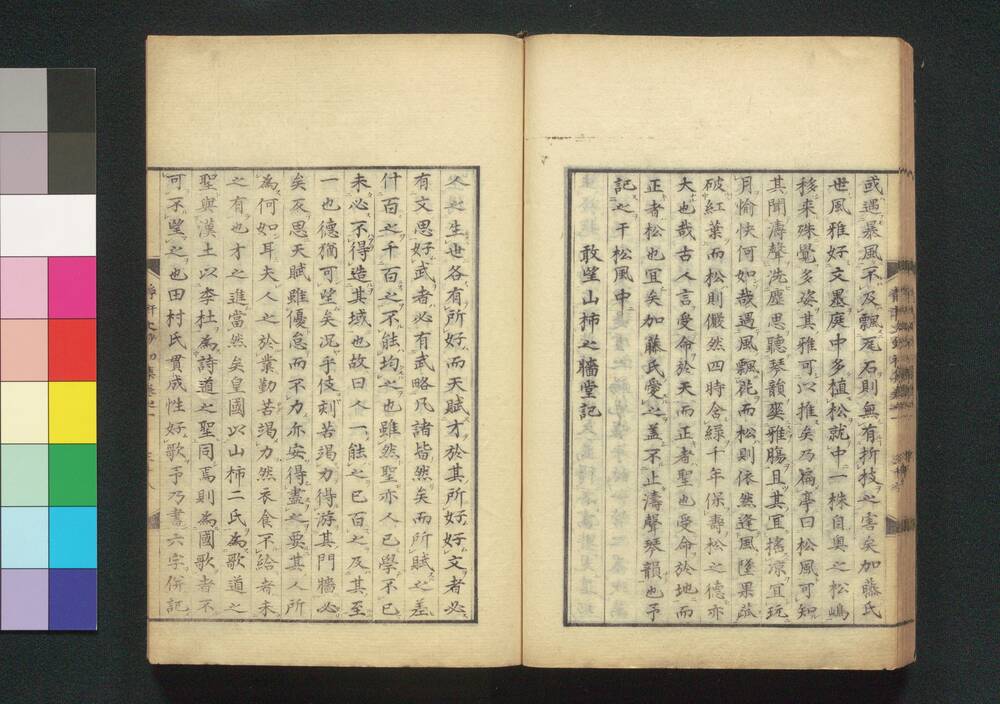 或遇暴風不及飄瓦石則無有折枝之害矣加藤氏
世風雅好文墨庭中多植松就中一株自奥之松嶋
移来殊覺多姿其雅可以推矣乃扁亭曰松風可知
其聞濤聲洗塵思聽琴韻奨雅膓且其宜搖凉宜玩
月愉快何如哉遇風飄花而松則依然逢風墜果
破紅葉而松則儼然四時含緑千年保壽松之德亦
大也哉古人言受命於天而正者聖也受命於地而
正者松也宜矣加藤氏愛之盖不止濤聲琴韻也予
記之于松風中
敢望山柿之牆堂記
人之生世各有所好而天賦才於其所好好文者必
有文思好武者必有武略凡諸皆然矣而所賦之差
什百之千百之不能均之也雖然聖亦人已學不已
未必不得造其域也故曰人一能之已百之及其至
一也德猶可望矣况乎伎刻苦竭力得游其門牆必
矣灰思天賦雖優怠而不力亦安得盡之要其人所
為何如耳夫人之於業勤苦竭力然衣食不給者未
之有也才之進當然矣皇國以山柿二氏為歌道之
聖與漢土以李杜為詩道之聖同焉則為國歌者不
可不望之也田村氏貫成性好歌予乃書六字併記